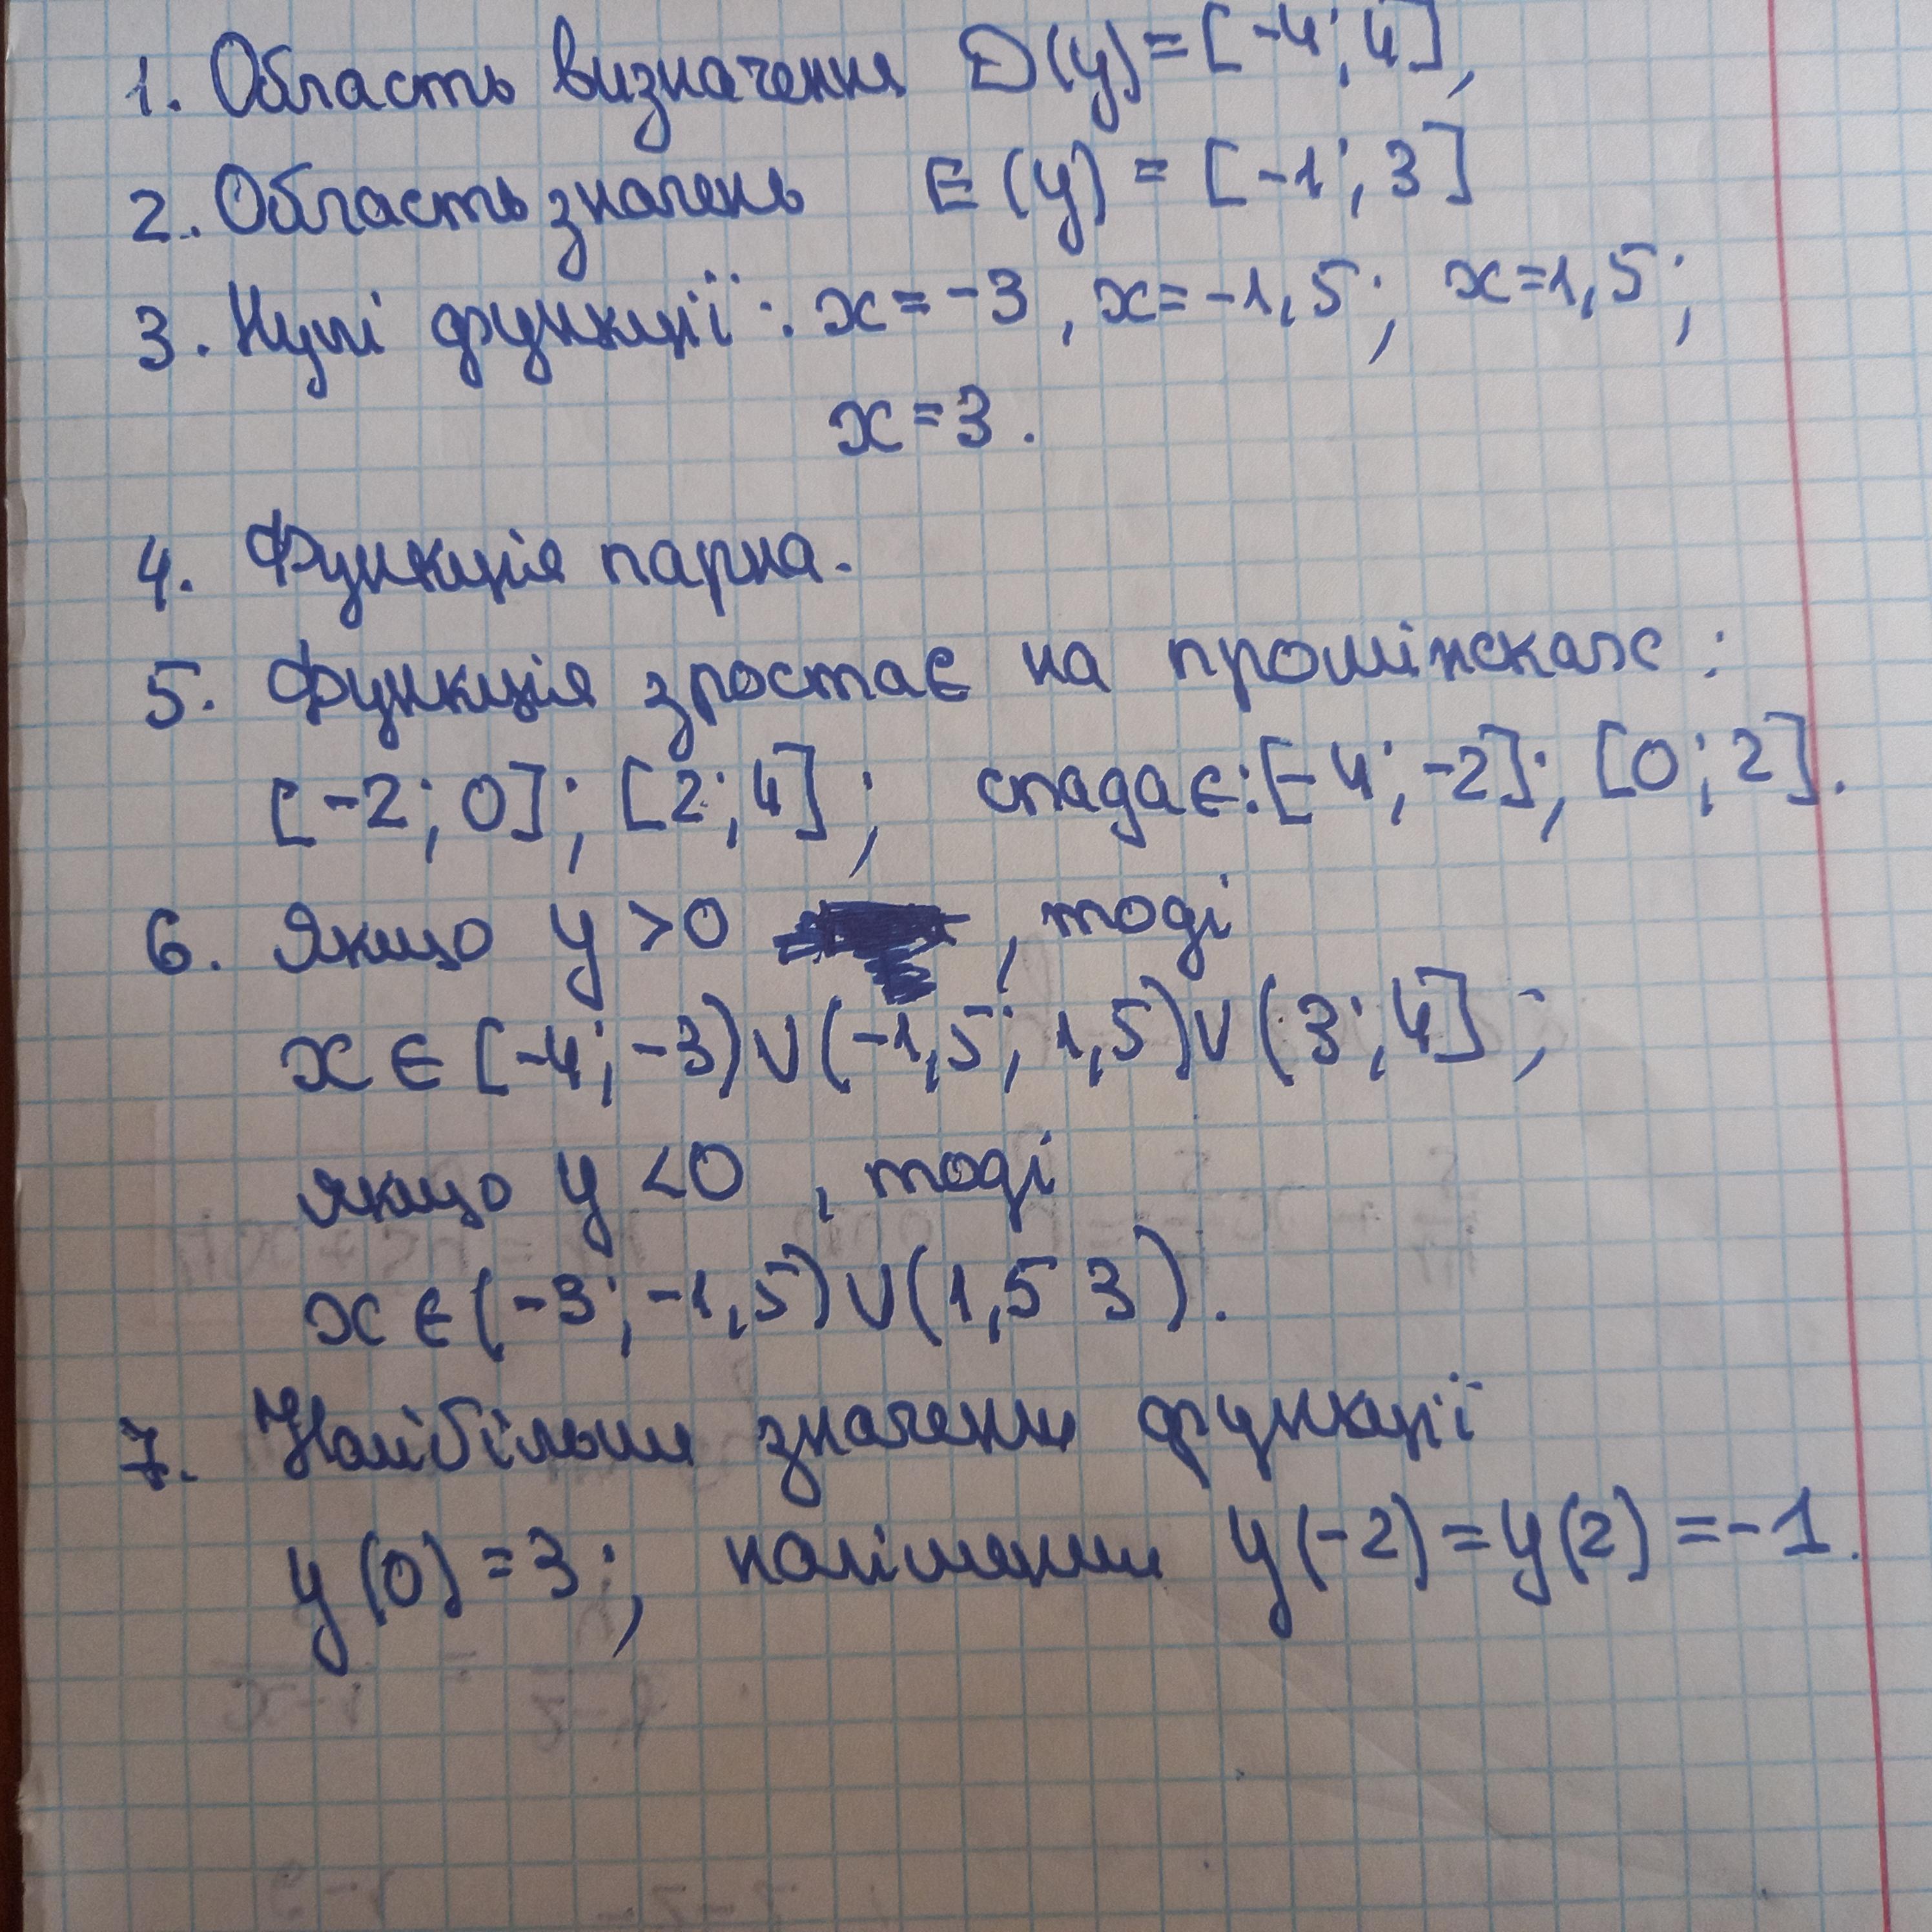 1. Область визначення D(y)=[-4; 4],
2. Область значень E(y) = [-1; 3]
3. Нулі функції: x=-3, x=-1,5; x=1,5;
x=3.
4. Функція парна.
5. Функція зростає на проміжках:
[-2; 0]; [2; 4]; спадає: [-4; -2]; [0; 2].
6. Якщо y>0 , тоді
x∈[-4; -3)∪(-1,5; 1,5)∪(3; 4];
якщо y<0 , тоді
x∈(-3; -1,5)∪(1,5 3).
7. Найбільше значення функції
y(0)=3; найменше y(-2)=y(2)=-1.